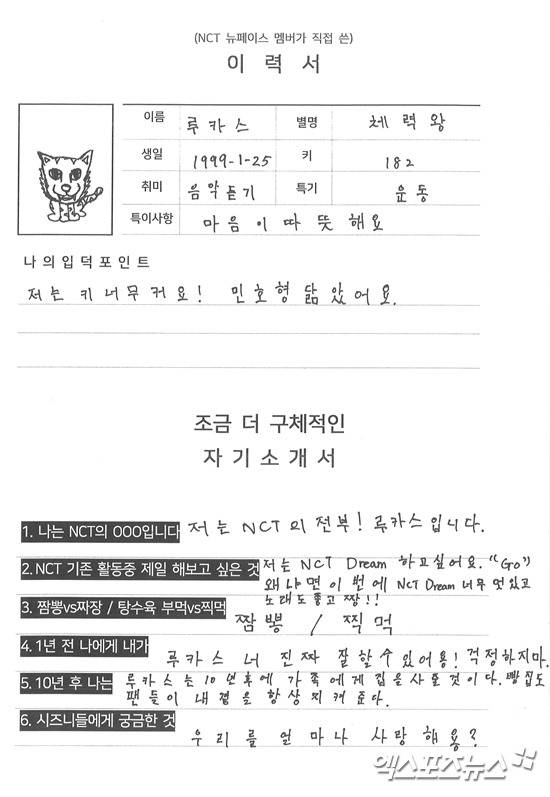 (NCT 뉴페이스 멤버가 직접 쓴)
이 력 서
이름 루카스 별명 체력왕
생일 1999-1-25 키 182
취미 음악듣기 특기 운동
특이사항 마음이따뜻해요
나의입덕포인트
저는 키너무커요! 민호형닮았어요.
조금 더 구체적인
자기소개서
1. 나는 NCT의 OOO입니다 저는 NCT의전부! 루카스입니다.
2.NCT 기존 활동중 제일 해보고 싶은 것 저는 NCT Dream 하고싶어요. "Go")
왜냐면이번에 NCT Dream 너무멋있고
노래도좋고짱!!
3. 짬뽕vs짜장 / 탕수육 부먹vs찍먹 짬뽕 / 찍먹
4.1년 전 나에게 내가 루카스 너 진짜 잘할수있어용! 걱정하지마.
5.10년 후 나는 루카스는10년후에 가족에게집을사줄것이다. 빵집도
팬들이 내곁을항상지켜준다.
6. 시즈니들에게 궁금한 것 우리를얼마나 사랑해용?
엑스포츠뉴스